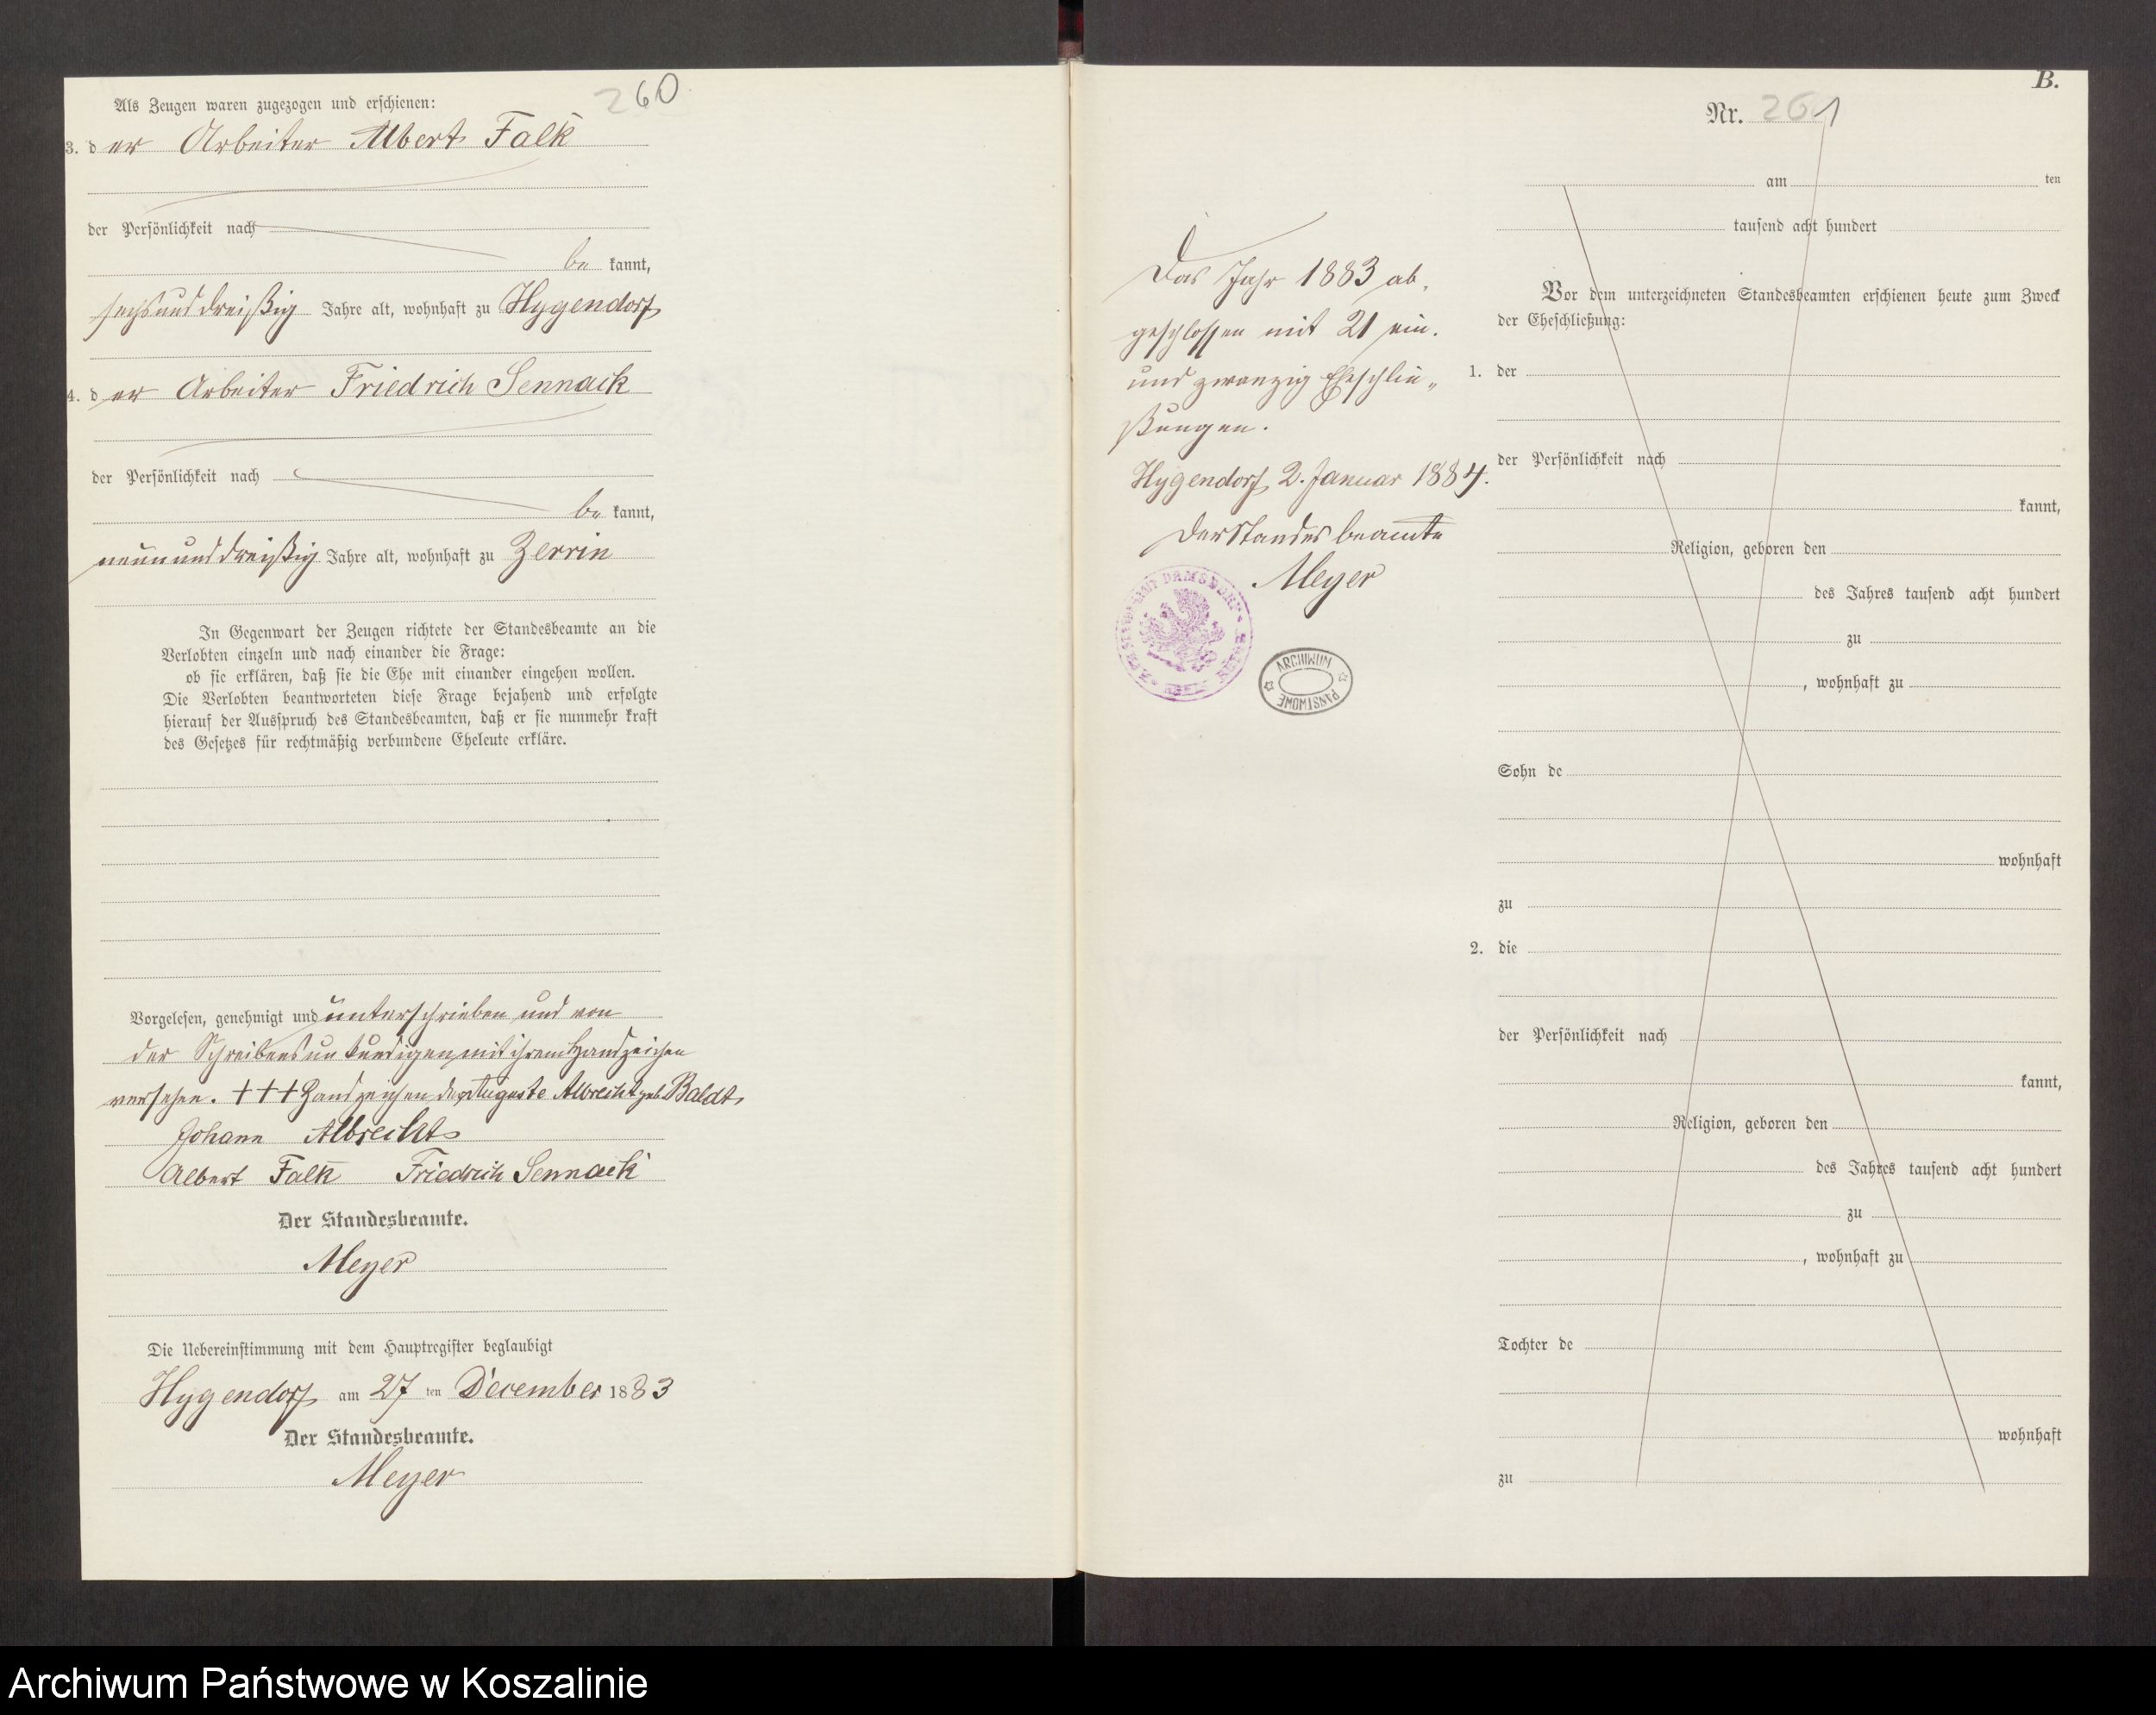 260
Als Zeugen waren zugezogen und erschienen:
3. der Arbeiter Albert Falk
der Persönlichkeit nach
be kannt,
sechsunddreißig Jahre alt, wohnhaft zu Hygendorf
4. der Arbeiter Friedrich Sennack
der Persönlichkeit nach
be kannt,
neununddreißig Jahre alt, wohnhaft zu Zerrin
In Gegenwart der Zeugen richtete der Standesbeamte an die
Verlobten einzeln und nach einander die Frage:
ob sie erklären, daß sie die Ehe mit einander eingehen wollen.
Die Verlobten beantworteten diese Frage bejahend und erfolgte
hierauf der Ausspruch des Standesbeamten, daß er sie nunmehr kraft
des Gesetzes für rechtmäßig verbundene Eheleute erkläre.
Vorgelesen, genehmigt und unterschrieben und von
der Schreibensunkundigen mit ihrem Handzeichen
versehen. +++ Handzeichen der Auguste Albrecht geb. Baldt,
Johann Albrecht
Albert Falk Friedrich Sennack
Der Standesbeamte.
Meyer
Die Uebereinstimmung mit dem Hauptregister beglaubigt
Hygendorf am 27 ten December 1883
Der Standesbeamte.
Meyer
B.
Nr. 261
am ten
tausend acht hundert
Das Jahr 1883 ab,
geschlossen mit 21 ein.
und zwanzig Eheschlie„
ßungen.
Hygendorf, 2. Januar 1884.
Der Standesbeamte
Meyer
DAMSDORF
ARCHIWUM
PAŃSTWOWE
Vor dem unterzeichneten Standesbeamten erschienen heute zum Zweck
der Eheschließung:
1. der
der Persönlichkeit nach
kannt,
Religion, geboren den
des Jahres tausend acht hundert
zu
, wohnhaft zu
Sohn de
wohnhaft
zu
2. die
der Persönlichkeit nach
kannt,
Religion, geboren den
des Jahres tausend acht hundert
zu
, wohnhaft zu
Tochter de
wohnhaft
zu
Archiwum Państwowe w Koszalinie